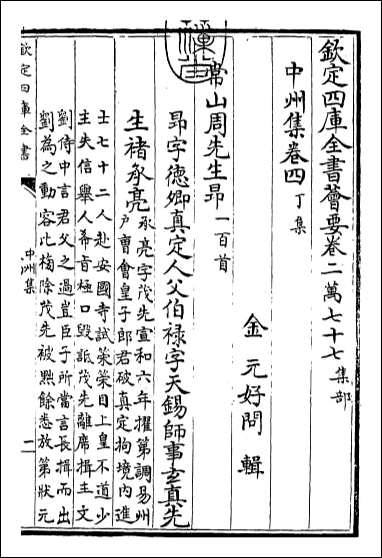 欽定四庫全書薈要卷二萬七十七集部
中州集卷四丁集
金元好問輯
常山周先生昂一百首
昂字德卿真定人父伯祿字天錫師事玄真先
生褚承亮承亮字茂先宣和六年擢第調易州
户曹會皇子郎君破真定拘境内進
士七十二人赴安國寺試策策目上皇不道少
主失信舉人希旨極口毁詆茂先離席揖主文
劉侍中言君父之過豈臣子所當言長揖而出
劉為之動容比榜除茂先被黜餘悉放第狀元
欽定四庫全書
中州集
一